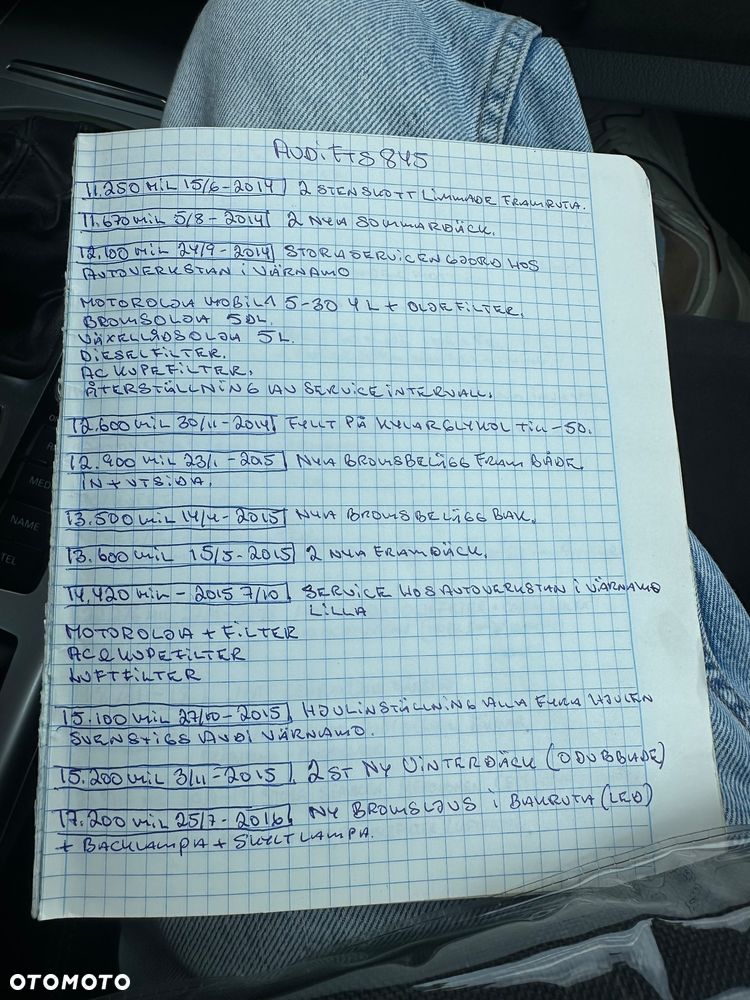 AUDI ETS 845
11.250 MIL 15/6-2014 2 STENSKOTT LIMMADE FRAMRUTA.
11.670 MIL 5/8-2014 2 NYA SOMMARDÄCK.
12.100 MIL 24/9-2014 STORA SERVICEN GJORD HOS
AUTOVERKSTAN I VÄRNAMO
MOTOROLJA MOBIL1 5-30 4L + OLJEFILTER.
BROMSOLJA 5DL.
VÄXELLÅDSOLJA 5L.
DIESELFILTER.
AC KUPEFILTER.
ÅTERSTÄLLNING AV SERVICEINTERVALL.
12.600 MIL 30/11-2014 FYLLT PÅ KYLARGLYKOL TILL -50.
12.900 MIL 23/1-2015 NYA BROMSBELÄGG FRAM BÅDE
IN + UTSIDA.
13.500 MIL 14/4-2015 NYA BROMSBELÄGG BAK.
13.600 MIL 15/5-2015 2 NYA FRAMDÄCK.
14.420 MIL - 2015 7/10 SERVICE HOS AUTOVERKSTAN I VÄRNAMO
LILLA
MOTOROLJA + FILTER
AC KUPEFILTER
LUFTFILTER
15.100 MIL 27/10-2015 HJULINSTÄLLNING ALLA FYRA HJULEN
SVENSTIGS AUDI VÄRNAMO.
15.200 MIL 3/11-2015 2 ST NY VINTERDÄCK (ODUBBADE)
17.200 MIL 25/7-2016 NY BROMSLJUS I BAKRUTA (LED)
+ BACKLAMPA + SKYLTLAMPA.
MED
NAME
TEL
OTOMOTO